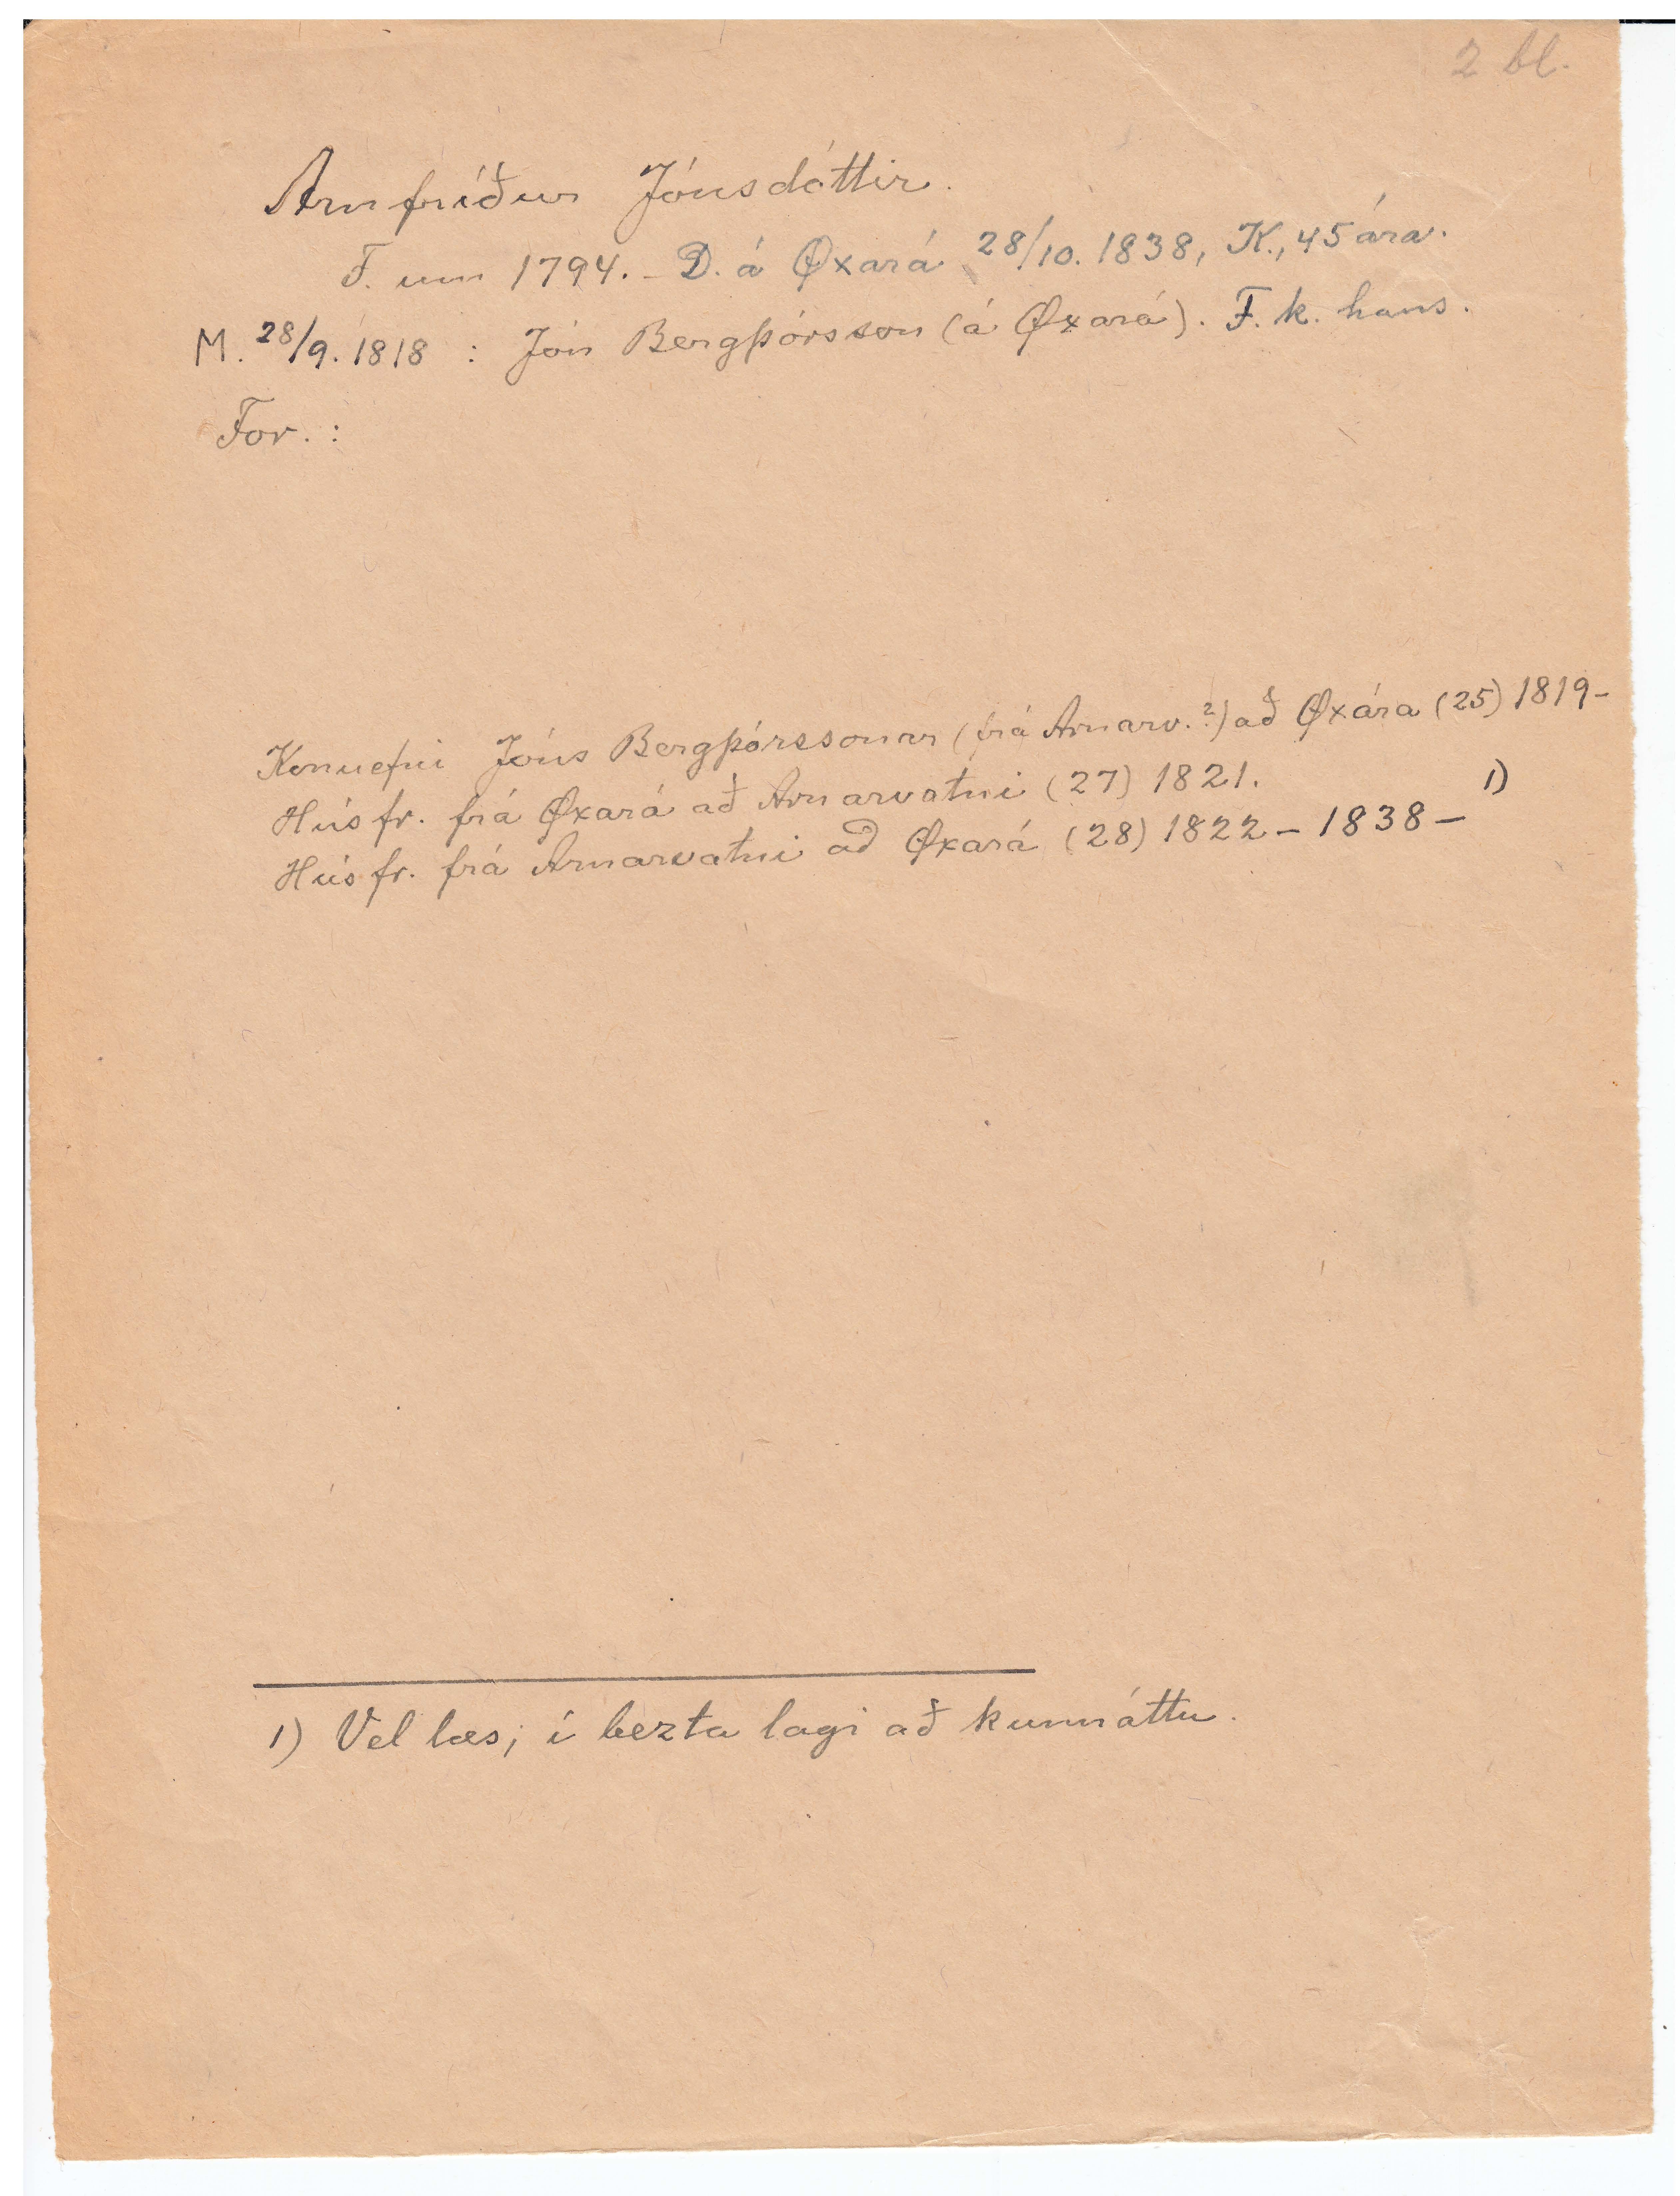 2 bl.
Arnfríður Jónsdóttir.
F. um 1794. – D. á Øxará 28/10. 1838, K., 45 ára.
M. 28/9. 1818 : Jón Bergþórsson (á Øxará). F. k. hans.
For. :
Konuefni Jóns Bergþórssonar (frá Arnarv.?) að Øxára (25) 1819–
Húsfr. frá Øxará að Arnarvatni (27) 1821.
Húsfr. frá Arnarvatni að Øxará (28) 1822 – 1838 – 1)
1) Vel læs; í bezta lagi að kunnáttu.